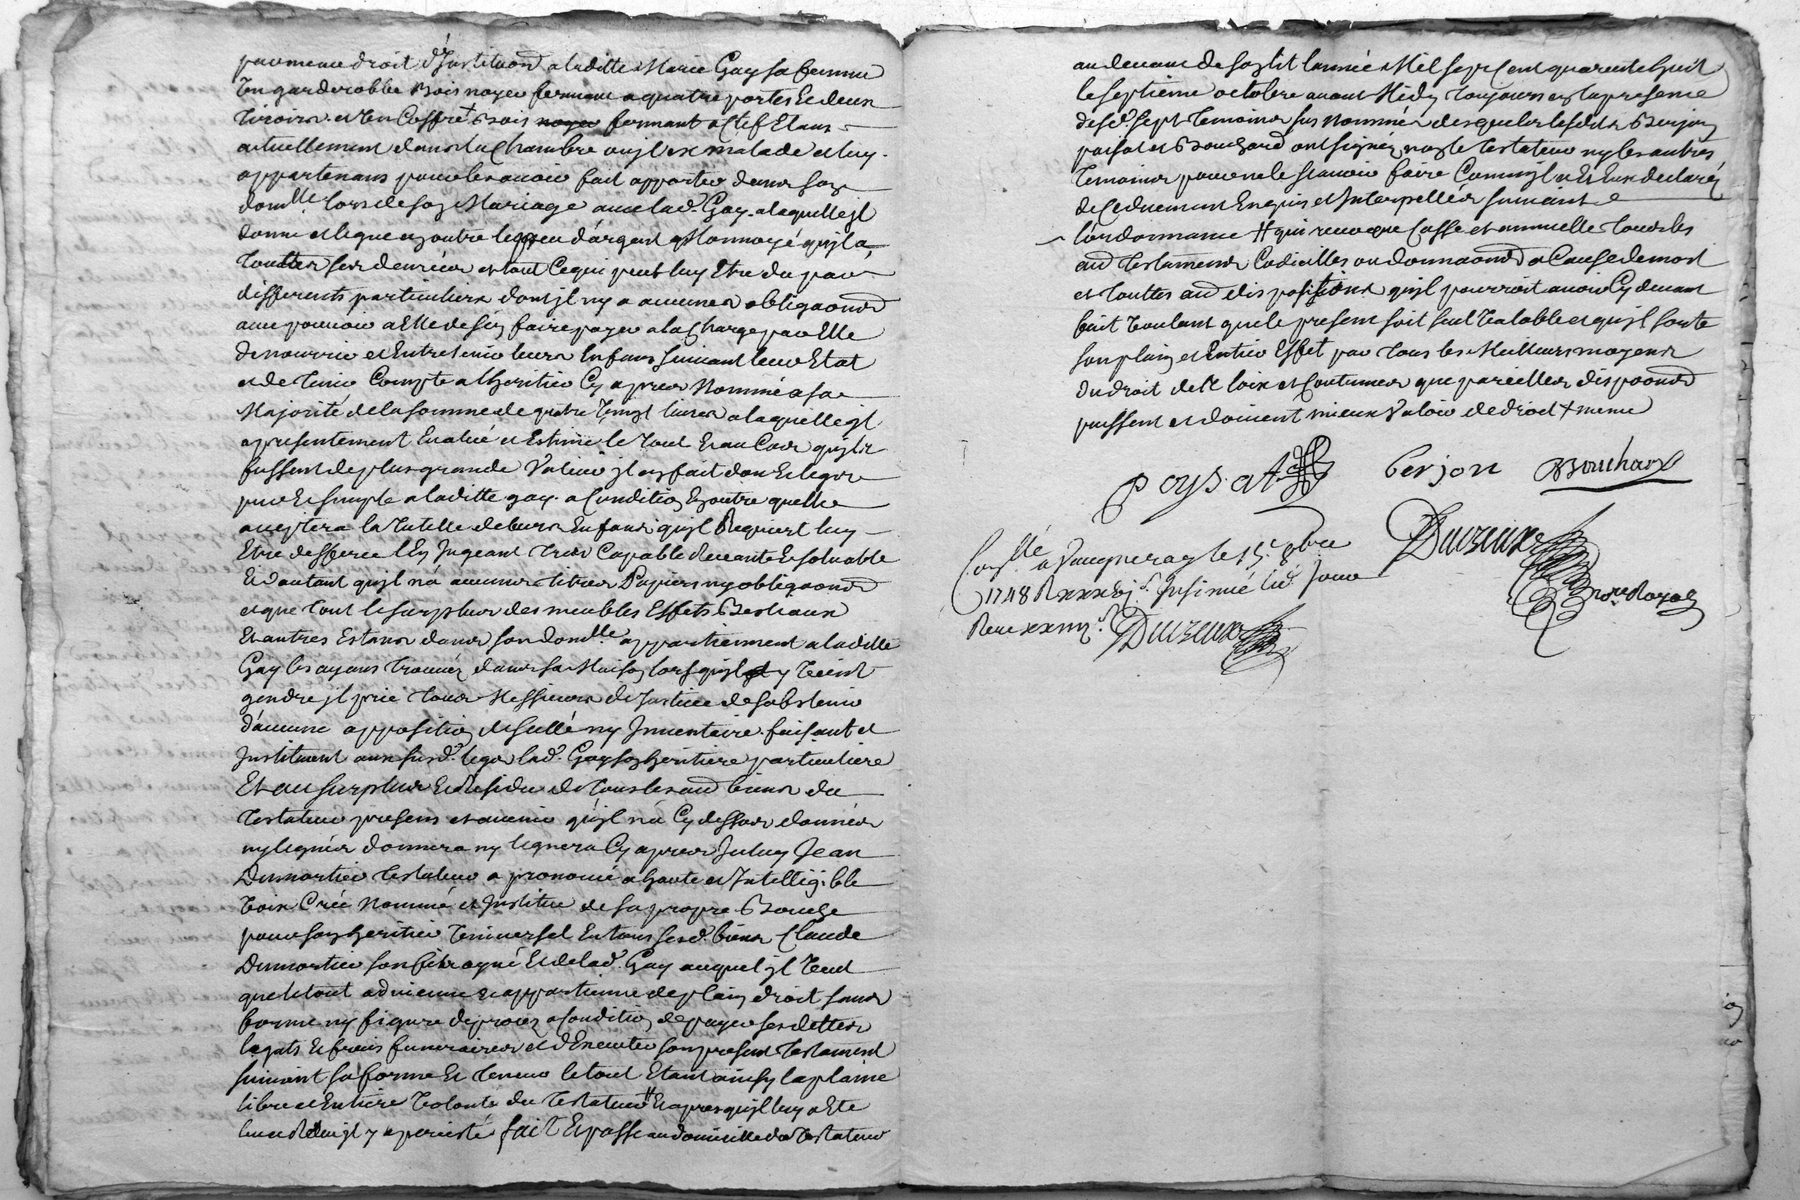 par meme droit d'Institution a laditte Marie Gay sa femme
Un garderobbe Bois noyer fermant a quatre portes Et deux
tiroirs et Un Coffre + Bois noyer fermant a Clef Etans
actuellement dans la Chambre ou jl Est malade et luy
appartenans pour les avoir fait apporter dans son
domille lors de son Mariage avec lad. Gay, a laquelle jl
donne et legue en outre le peu d'argent Monnoyé qu'jl a,
touttes ses denrées et tout Ce qui peut luy Etre du par
differents particuliers dont jl n'y a aucunes obligaons
avec pouvoir a Elle de s'en faire payer a la Charge par Elle
de nourrir et Entretenir leurs Enfans suivant leur Etat
et de tenir Compte a l'heritier Cy apres Nommé a sa
Majorité de la somme de quatre vingt livres a laquelle jl
a presentement Evalué et Estimé le tout Et au Cas qu'jls
fussent de plus grande Valeur jl en fait don Et legue
pur Et simple a laditte gay a Condition En outre quelle
acceptera la tutelle de leurs Enfans qu'jl Requiert luy
Etre defferée l'En Jugeant tres Capable Et solvable
Et d'autant qu'jl n'a aucuns titres Papiers ny obligaons
et que tout le surplus des meubles Effets Bestiaux
Et autres Estans dans son domille appartiennent a laditte
Gay les ayans trouvés dans sa Maison lors qu'jl y Vint
gendre jl prie tous Messieurs de Justice de s'abstenir
d'aucune apposition de scellé ny Inventaire faisant et
Instituant aux susd. legs lad. Gay son heritiere particuliere
Et au surplus Et Residu de tous les aud biens du
testateur presens et avenir qu'jl n'a Cy dessus donnés
ny legués donnera ny leguera Cy apres Jceluy Jean
Dumortier testateur a prononcé a haute et Intelligible
Voix Créé Nommé et Institué de sa propre Bouche
pour son heritier Universel En tous sesd. biens Claude
Dumortier son fils ayné Et de lad. Gay auquel jl Veut
que le tout advienne et appartienne de plain droit sans
forme ny figure de proces a Condition de payer ses dettes
legats Et frais funeraires et d'Executer son present testament
suivant sa forme Et teneur le tout Etant ainsy la plaine
libre et Entiere Volonté du testateur # Et apres qu'jl luy a Ete
leu et Relu jl y a persisté fait Et passé au domicille du testateur
au devant de son lit l'année Mil sept Cent quarente huit
le septième octobre avant Midy toujours en la presence
desd. sept temoins sus nommés desquels lesd. Berjon
poysat et Bouchard ont signés non le testateur ny les autres
temoins pour ne le scavoir faire Comm'jls Et Eux declarés
de Ce duement Enquis et Interpellés suivant
l'ordonnance # qui revoque Casse et annulle tous les
aud testamens Codicilles ou donnaons a Cause de mort
et touttes aud dispositions qu'jl pourroit avoir Cy devant
fait Voulant que le present soit seul Valable et qu'jl sorte
son plain et Entier Effet par tous les Meilleurs moyens
du droit des loix et Coutumes que pareilles dispoons
puissent et doivent mieux Valoir de droit + meme
poysat berjon Bouchard
Duvreux
nore. Royal
Conslé a Vaugneray le 15e. 8bre
1748 R xxxx Insinué led. Jour
Receu
Duvreux